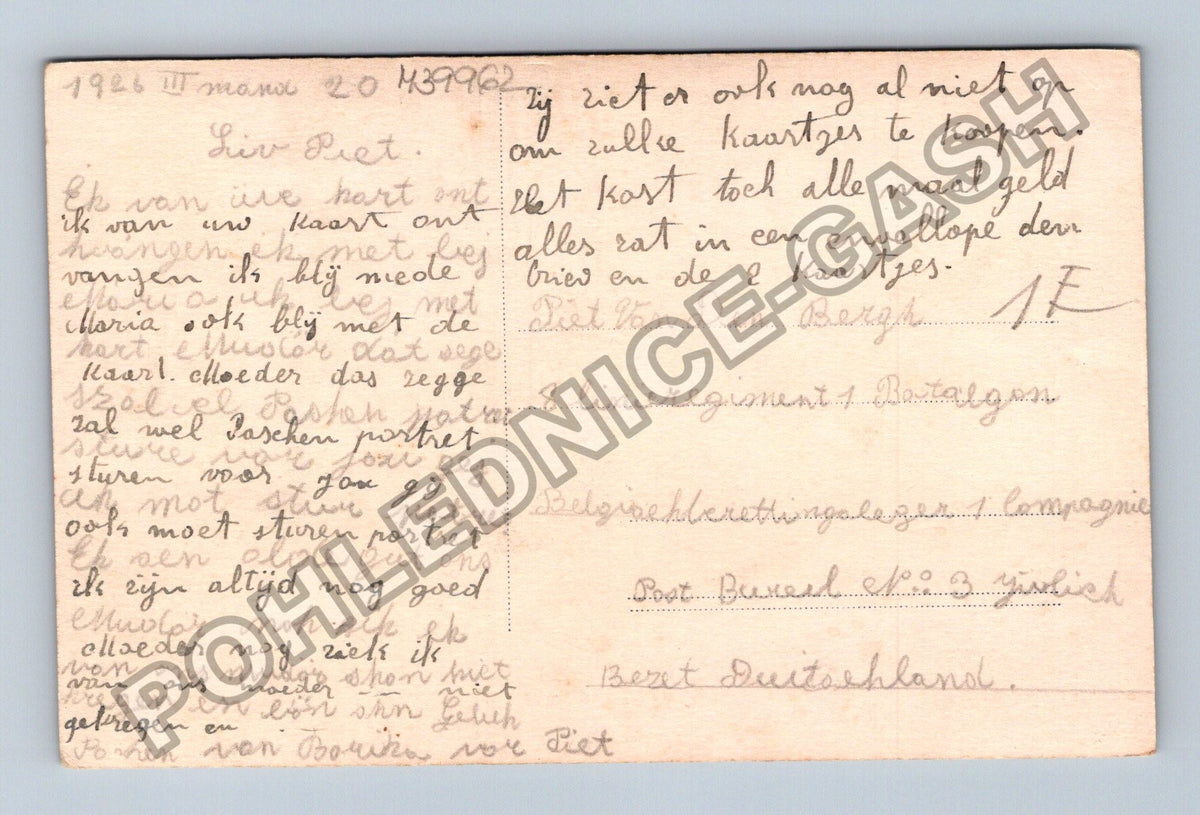 1926 III mand 20
439962
Liv Piet.
Ek van uve kart ont
ik van uw kaart ont
hvangen ek met blej
vangen ik blij mede
Maria uk blej met
Maria ook blij met de
kart Mudór dat sege
kaart. Moeder das zegge
szal vel Pashen
zal wel Paschen portret
sture vor jou
sturen voor jou gij
an mot stur
ook moet sturen portret
Ek sen
ik zijn altijd nog goed
Mudór ek
Moeder nog ziek ik
van mudór shon niet
van ons moeder — niet
en
gekregen en
van Borika vor Piet
zij ziet er ook nog al niet op
om zulke kaartjes te koopen.
Het kost toch alle maal geld
alles zat in een envellope den
briev en de 2 kaartjes.
1 F
Piet Van Bergh
8 linieregiment 1 Batalgon
1 Compagnie
Post Bureel No: 3
Bezet Duitschland.
POHLEDNICE-GASH